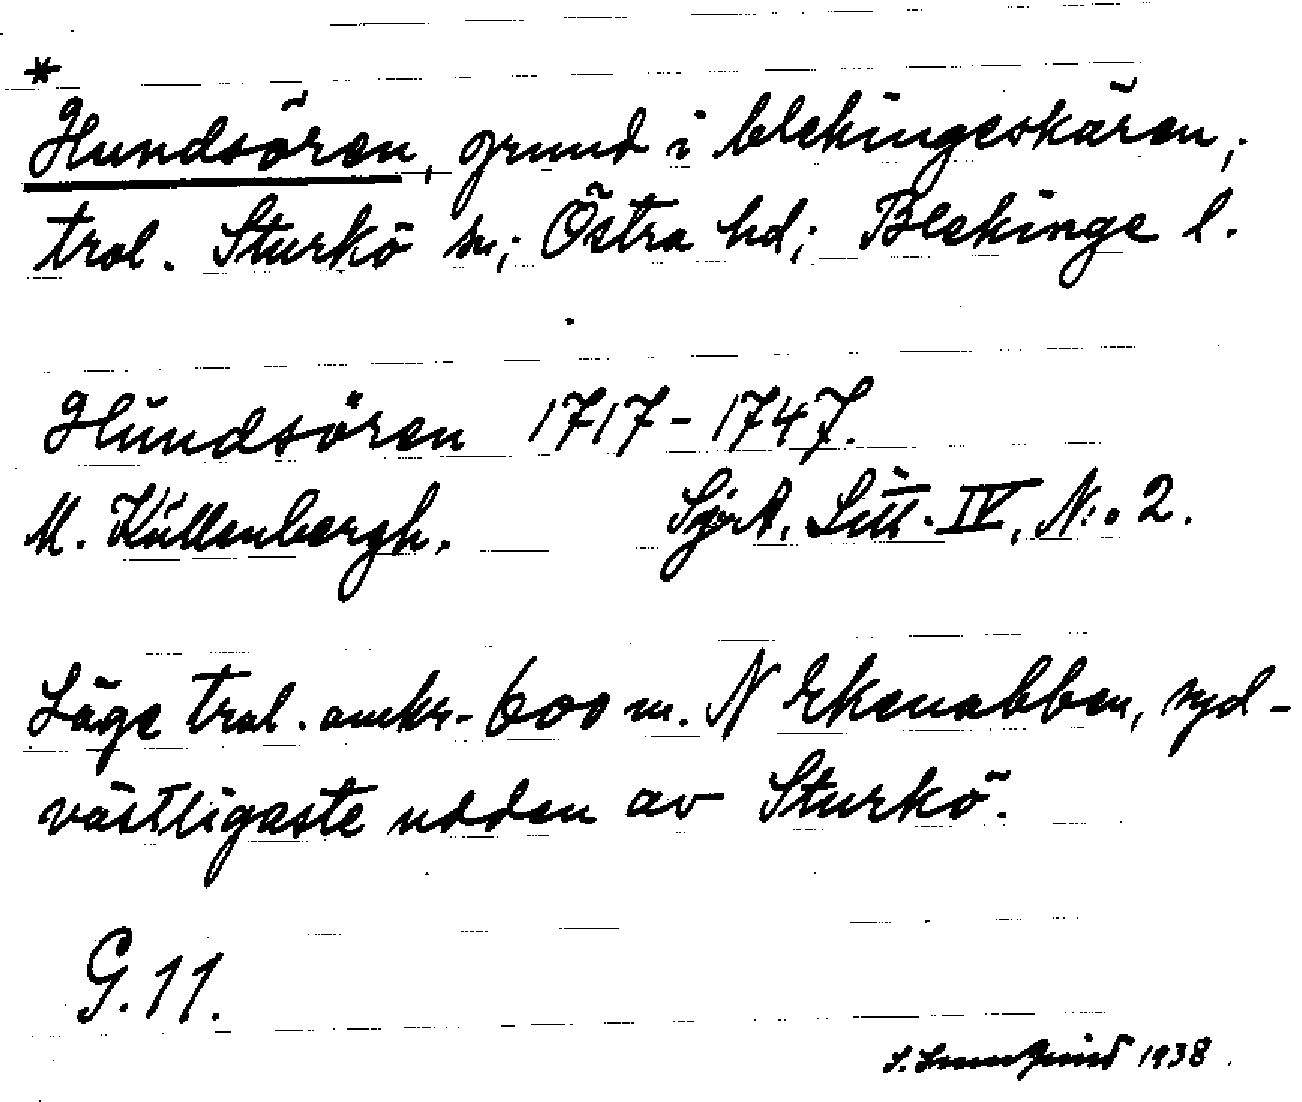 *
Hundsören, grund i blekingeskären,;
trol. Sturkö sn; Östra hd; Blekinge l.
Hundsören 1717-1747.
M. Küllenbergh. SjkA, Litt. IV, N:o 2.
Läge trol. omkr. 600 m. N Ekenabben, syd-
västligaste udden av Sturkö.
G. 11.
1938.